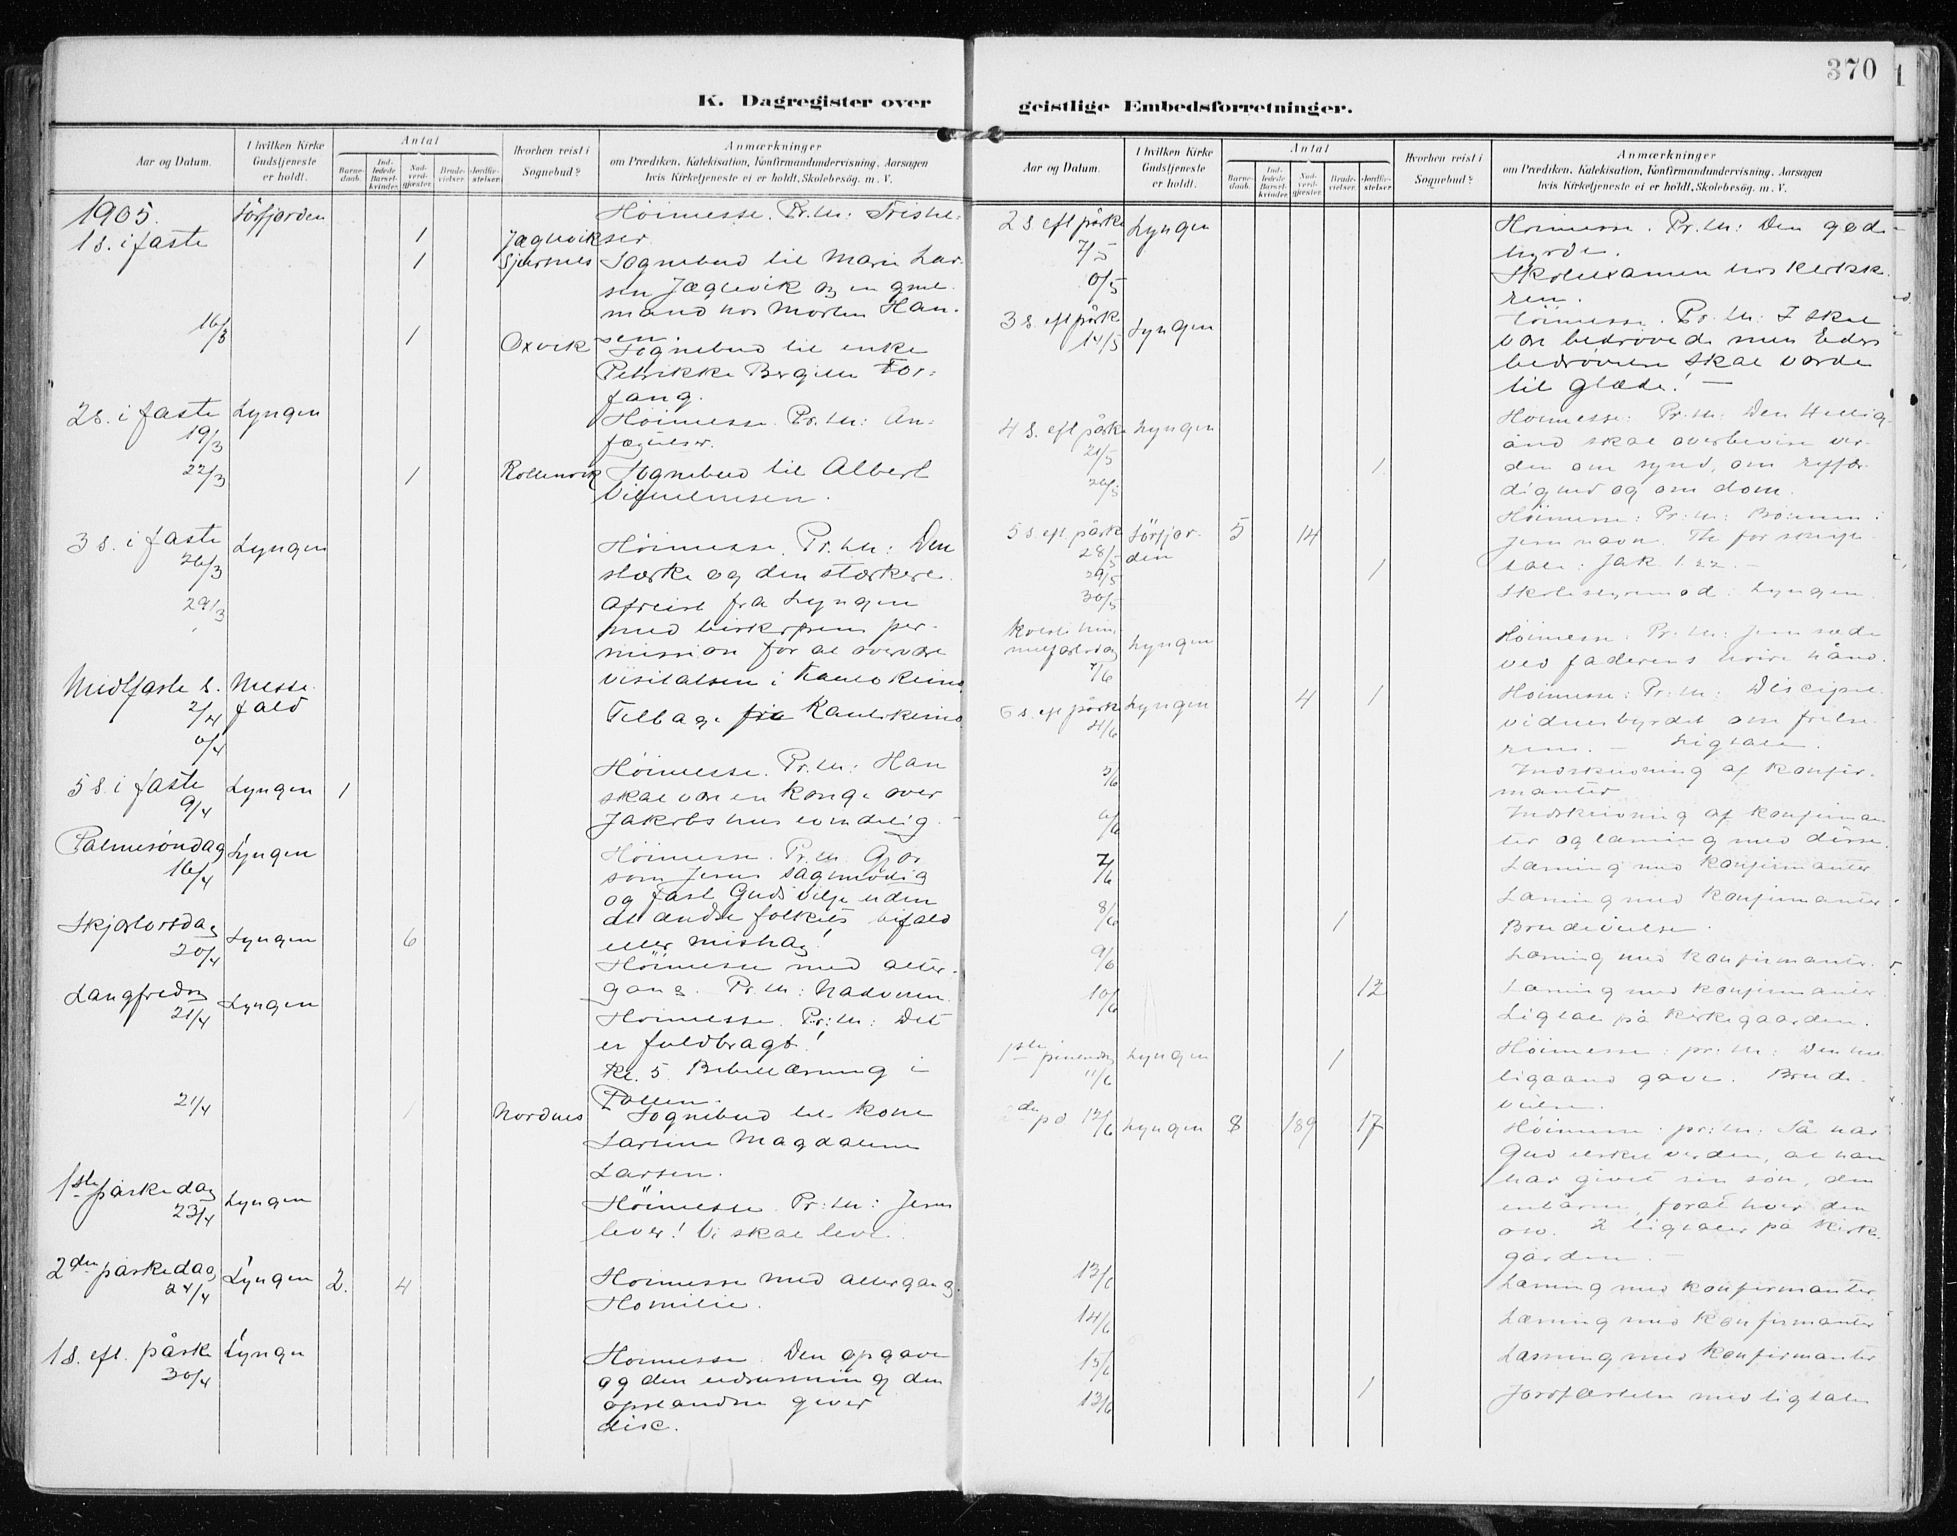 370
K. Dagregister over
geistlige Embedsforretninger.
Aar og Datum.
I hvilken Kirke Gudstjeneste er holdt.
Antal
Barnedaab.
Indledede Barselkvinder.
Nadverdgjester.
Brudevielser.
Jordfæstelser.
Hvorhen reist i Sognebud?
Anmærkninger
om Prædiken, Katekisation, Konfirmandundervisning, Aarsagen
hvis Kirketjeneste ei er holdt, Skolebesøg. m. V.
1905.
1 s. i faste Sörfjorden 1 Jægervik Höimesse. Pr. th: Fristel-
ser.
1 Sjursnes Sognebud til Marie Lar-
sen Jægervik og en gml.
mand hos Morten Han-
sen.
16/3 1 Oxvik Sognebud til enke
Petrikke Bergitte For-
fang.
2 s. i faste Lyngen Höimesse. Pr. th: An-
19/3 fægtelser.
22/3 1 Rottenvik Sognebud til Albert
Vilhelmsen.
3 s. i faste Lyngen Höimesse. Pr. th: Den
26/3 stærke og den stærkere.
29/3 Afreist fra Lyngen
med biskopens per-
mission for at overvære
visitatsen i Kautokeino
Midtfaste s. Messe-
2/4 fald
6/4 Tilbage fra Kautokeino
5 s. i faste Lyngen 1 Höimesse. Pr. th: Han
9/4 skal være en konge over
Jakobs hus evindelig.
Palmesöndag Lyngen Höimesse. Pr. th. Gjör
16/4 som Jesus sagmodig
og fast Guds vilje uden
at ændse folkets bifald
eller mishag!
Skjærtorsdag Lyngen 6 Höimesse med alter-
20/4 gang. Pr. th: Nadveren.
Langfredag Lyngen Höimesse. Pr: th: Det
21/4 er fuldbragt!
Kl. 5. Bibellæsning i
Pollen.
21/4 1 Nordnes Sognebud til kone
Larsine Magdalene
Larsen.
1ste påskedag Lyngen Höimesse. Pr: th: Jesus
23/4 lever! Vi skal leve.
2den påskedag Lyngen 2. 4 Höimesse med altergang.
24/4 Homilie.
1 s. eft. påske Lyngen Höimesse. Den opgave
30/4 og den udrustning den
opstandne giver
disc.
2 s eft påske Lyngen Höimesse. Pr. th: Den gode
7/5 hyrde.
Skoleexamen hos kirkesgr.
3 s. eft påske Lyngen Höimesse. Pr. th: I skal
14/5 være bedrövede men Eders
bedrövelse skal vorde
til glæde! —
4 s. eft påske Lyngen Höimesse: Pr: th: Den Hellig-
21/5 ånd skal overbevise ver-
1 den om synd, om retfær-
26/5 dighed og om dom.
5 s. eft. påske Sörfjor- 5 14 Höimesse: Pr: th: Bönnen i
28/5 den Jesu navn.
29/5 1 Jak 1.22. —
30/5 Skolestyremöd: Lyngen.
Kristi him- Lyngen Höimesse: Pr: th: Jesu sæde
melfartsdag ved faderens höire hånd.
1/6
6 s. eft påske Lyngen 4 1 Höimesse: Pr: th: Disciple-
4/6 vidnesbyrdet om frelse-
ren. — Ligtale.
5/6 Indskrivning af konfir-
manter
6/6 Indskrivning af konfirman-
ter og læsning med disse.
7/6 Læsning med konfirmanter
8/6 Læsning med konfirmanter.
1 Brudevielse.
9/6 Læsning med konfirmanter.
10/6 12 Læsning med konfirmanter.
Ligtale på kirkegaarden.
1ste pinsedag Lyngen 1 Höimesse: pr: th: Den hel-
11/6 ligaands gave. Brude-
vielse.
2den pd 12/6 Lyngen 8 189 17 Höimesse: pr: th: Så har
Gud elsket verden, at han
har givet sin sön, den
enbårne, forat hver den
osv. 2 ligtaler på kirke-
gården. —
13/6 Læsning med konfirmanter.
14/6 Læsning med konfirmanter
15/6 Læsning med konfirmanter
13/6 1 Jordfæstelse med ligtale